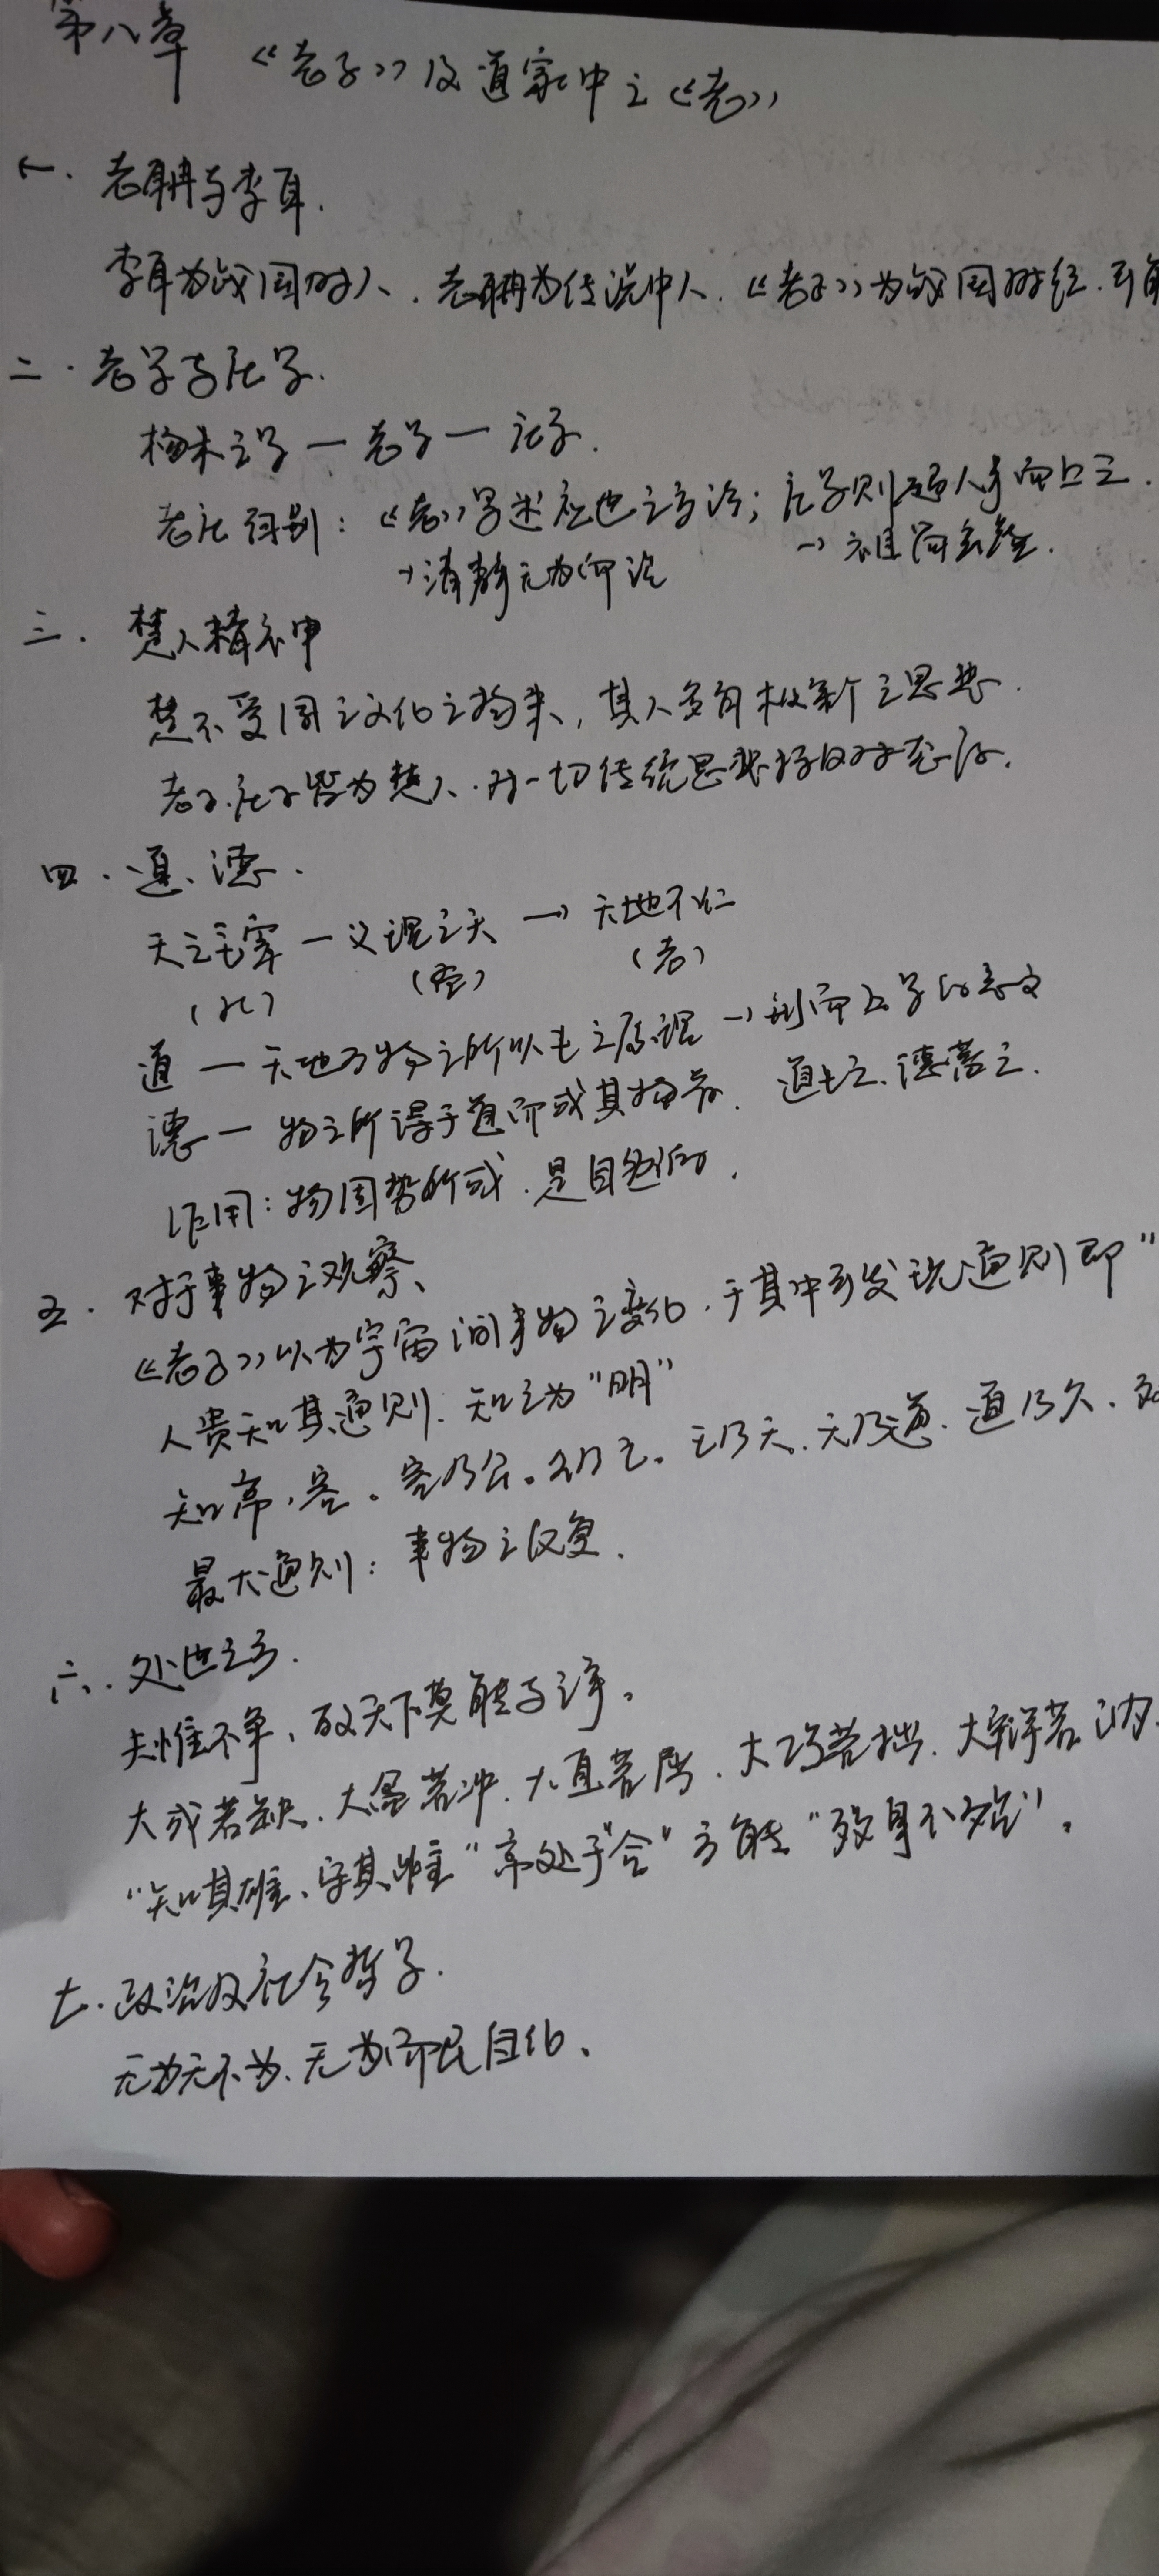 第八章 《老子》及道家中之《老》
一. 老聃与李耳.
李耳为战国时人. 老聃为传说中人. 《老子》为战国时经.
二. 老学与庄学.
杨朱之学一老学一庄学.
老庄得别: 《老》学述应世之方论; 庄学则超人事而上之.
→清静无为
三. 楚人精神
楚不受周之文化之拘束, 其人多有极新之思想.
老子.庄子皆为楚人. 对一切传统思想持反对态度.
四. 道、德.
天之主宰一义理之天→天地不仁
(孔) (孟) (老)
道一天地万物之所以生之原理→形而上学的意义
德一物之所得于道而成其物者. 道生之、德蓄之.
作用: 物因势所成. 是自然的.
五. 对于事物之观察、
《老子》以为宇宙间事物之变化. 于其中可发现通则即"
人贵知其通则. 知之为"明"
知常, 容。容乃公。公乃王。王乃天. 天乃道. 道乃久.
最大通则: 事物之反复.
六. 处世之方.
夫惟不争, 故天下莫能与之争。
大成若缺. 大盈若冲. 大直若屈. 大巧若拙. 大辩若讷.
"知其雄、守其雌" 常处于"合"方能"殁身不殆"。
七. 政治及社会哲学.
无为无不为. 无为而民自化、